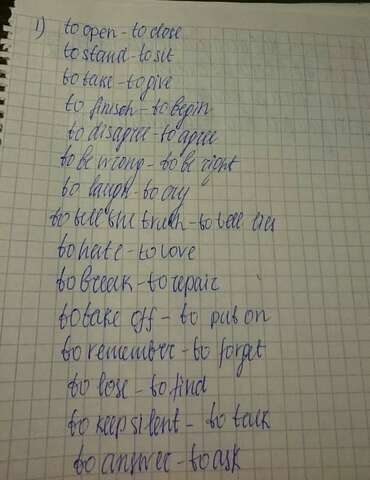 1) to open - to close
to stand - to sit
to take - to give
to finish - to begin
to disagree - to agree
to be wrong - to be right
to laugh - to cry
to tell the truth - to tell lies
to hate - to love
to break - to repair
to take off - to put on
to remember - to forget
to lose - to find
to keep silent - to talk
to answer - to ask